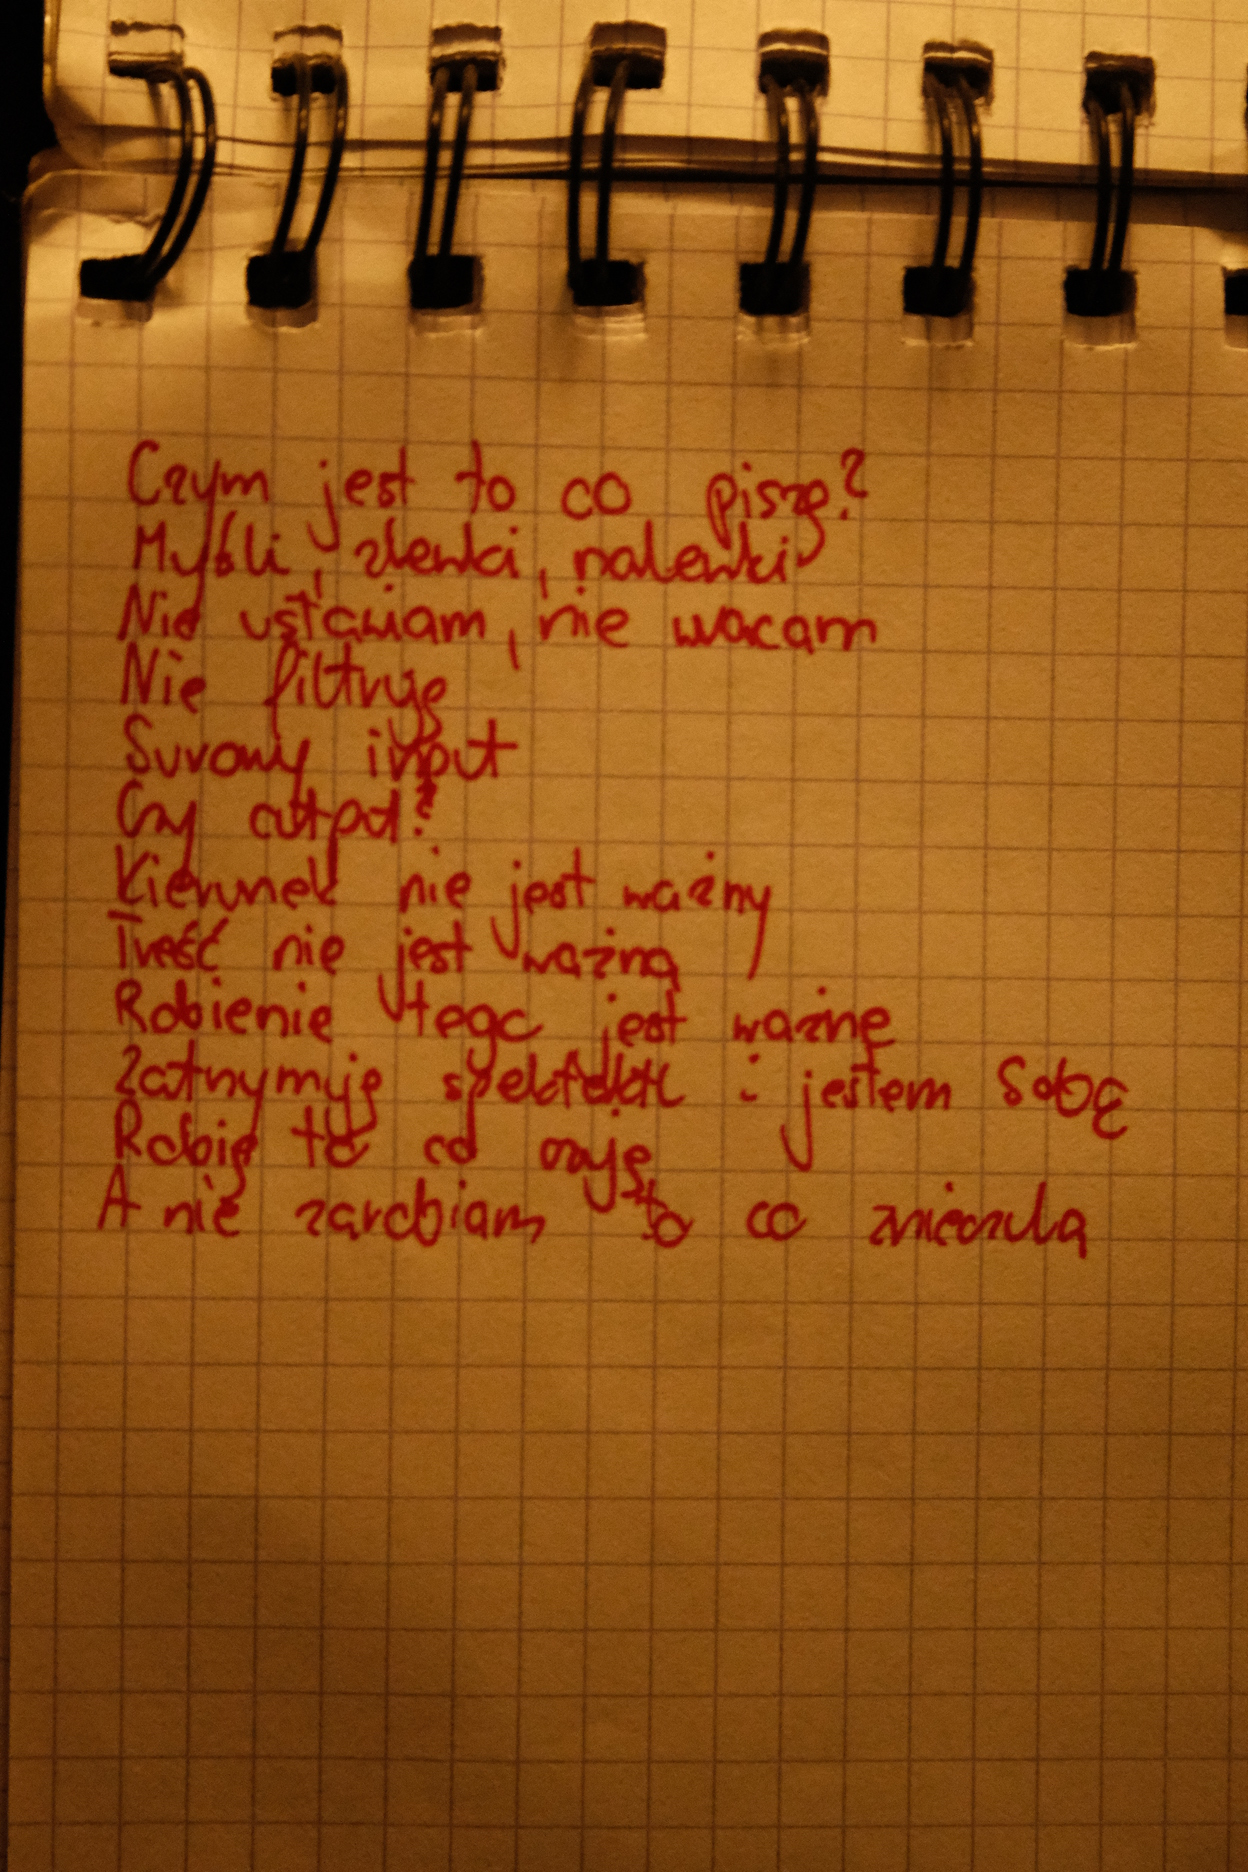 Czym jest to co piszę?
Myśli, zlewki, nalewki
Nie ustawiam, nie wracam
Nie filtruję
Surowy input
Czy output?
Kierunek nie jest ważny
Treść nie jest ważna
Robienie tego jest ważne
Zatrzymuję spektakl i jestem sobą
Robię to co czuję
A nie zarabiam to co znieczula